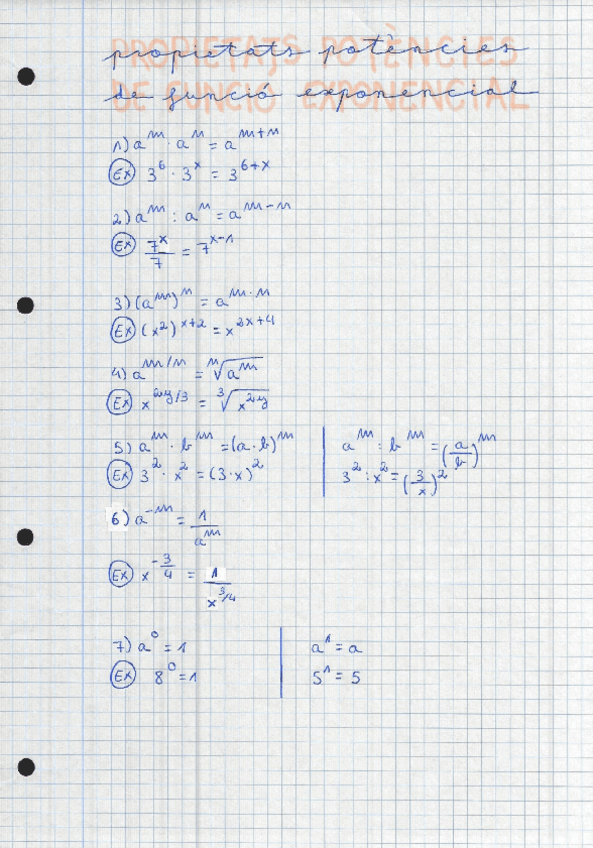 propietats potències
de funció exponencial
1) a^m · a^n = a^(m+n)
Ex 3^6 · 3^x = 3^(6+x)
2) a^m : a^n = a^(m-n)
Ex 7^x/7 = 7^(x-1)
3) (a^m)^n = a^(m·n)
Ex (x^2)^(x+2) = x^(2x+4)
4) a^(m/n) = ⁿ√(a^m)
Ex x^(2y/3) = ³√(x^(2y))
5) a^m · b^m = (a·b)^m | a^m : b^m = (a/b)^m
Ex 3^2 · x^2 = (3·x)^2 | 3^2 : x^2 = (3/x)^2
6) a^(-m) = 1/a^m
Ex x^(-3/4) = 1/x^(3/4)
7) a^0 = 1 | a^1 = a
Ex 8^0 = 1 | 5^1 = 5